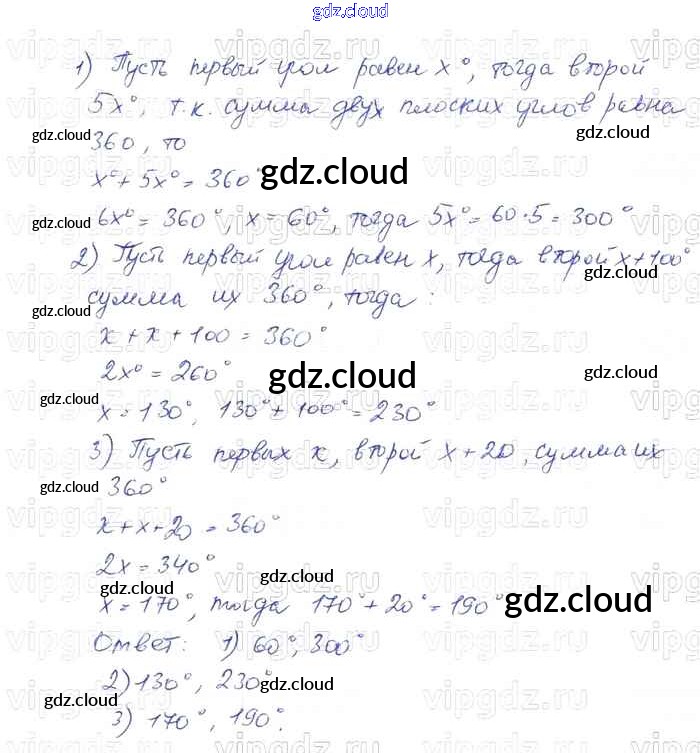 gdz.cloud
1) Пусть первый угол равен x°, тогда второй
5x°, т.к. сумма двух плоских углов равна
gdz.cloud gdz.cloud
360, то
x° + 5x° = 360° gdz.cloud
gdz.cloud 6x° = 360°, x = 60°, тогда 5x° = 60·5 = 300°
2) Пусть первый угол равен x, тогда второй x+100°
gdz.cloud
сумма их 360°, тогда:
x + x + 100 = 360°
2x° = 260° gdz.cloud gdz.cloud
gdz.cloud
x = 130°, 130° + 100° = 230°
3) Пусть первых x, второй x + 20, сумма их
gdz.cloud 360°
x + x + 20 = 360°
2x = 340°
gdz.cloud gdz.cloud
x = 170°, тогда 170° + 20° = 190° gdz.cloud
Ответ: 1) 60°, 300°
2) 130°, 230° gdz.cloud
gdz.cloud
3) 170°, 190°.
vipgdz.ru